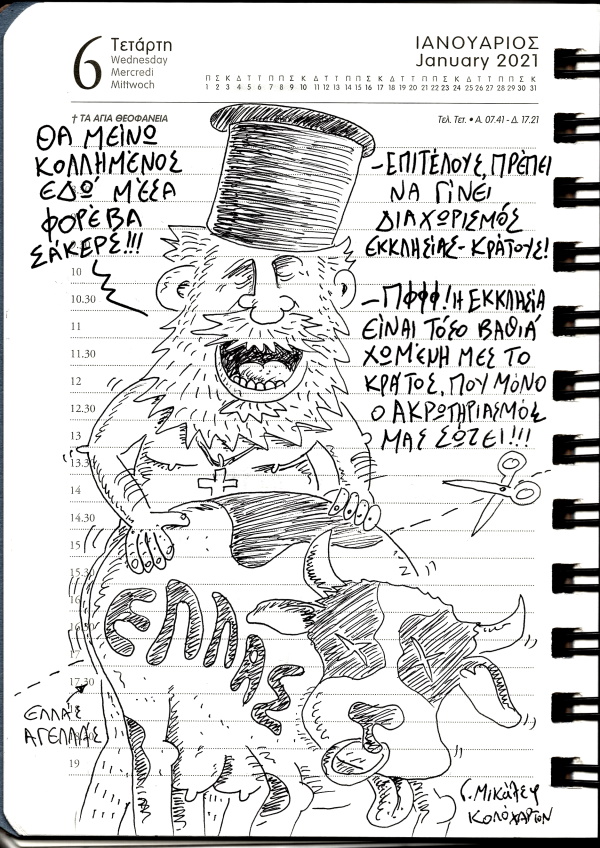 6
Τετάρτη
Wednesday
Mercredi
Mittwoch
ΙΑΝΟΥΑΡΙΟΣ
January 2021
Π Σ Κ Δ Τ Τ Π Π Σ Κ Δ Τ Τ Π Π Σ Κ Δ Τ Τ Π Π Σ Κ Δ Τ Τ Π Π Σ Κ
1 2 3 4 5 6 7 8 9 10 11 12 13 14 15 16 17 18 19 20 21 22 23 24 25 26 27 28 29 30 31
† ΤΑ ΑΓΙΑ ΘΕΟΦΑΝΕΙΑ
Τελ. Τετ. • Α. 07.41 - Δ. 17.21
ΘΑ ΜΕΙΝΩ
ΚΟΛΛΗΜΕΝΟΣ
ΕΔΩ ΜΈΣΑ
ΦΟΡΕΒΑ
ΣΑΚΕΡΣ!!!
-ΕΠΙΤΕΛΟΥΣ, ΠΡΈΠΕΙ
ΝΑ ΓΊΝΕΙ
ΔΙΑΧΩΡΙΣΜΌΣ
ΕΚΚΛΗΣΙΑΣ-ΚΡΆΤΟΥΣ!
-ΠΦΦΦ! Η ΕΚΚΛΗΣΙΑ
ΕΊΝΑΙ ΤΌΣΟ ΒΑΘΙΆ
ΧΩΜΈΝΗ ΜΕΣ ΤΟ
ΚΡΆΤΟΣ, ΠΟΥ ΜΌΝΟ
Ο ΑΚΡΩΤΗΡΙΑΣΜΌΣ
ΜΑΣ ΣΩΖΕΙ!!!
10
10.30
11
11.30
12
12.30
13
13.3
14
14.30
15
15.30
16
16.30
17
17.30
19
ΕΛΛΑΣ
ΕΛΛΆΣ
ΑΓΕΛΛΆΣ
Γ. ΜΙΚΆΛΕΦ
ΚΩΛΌΧΑΡΤΟΝ